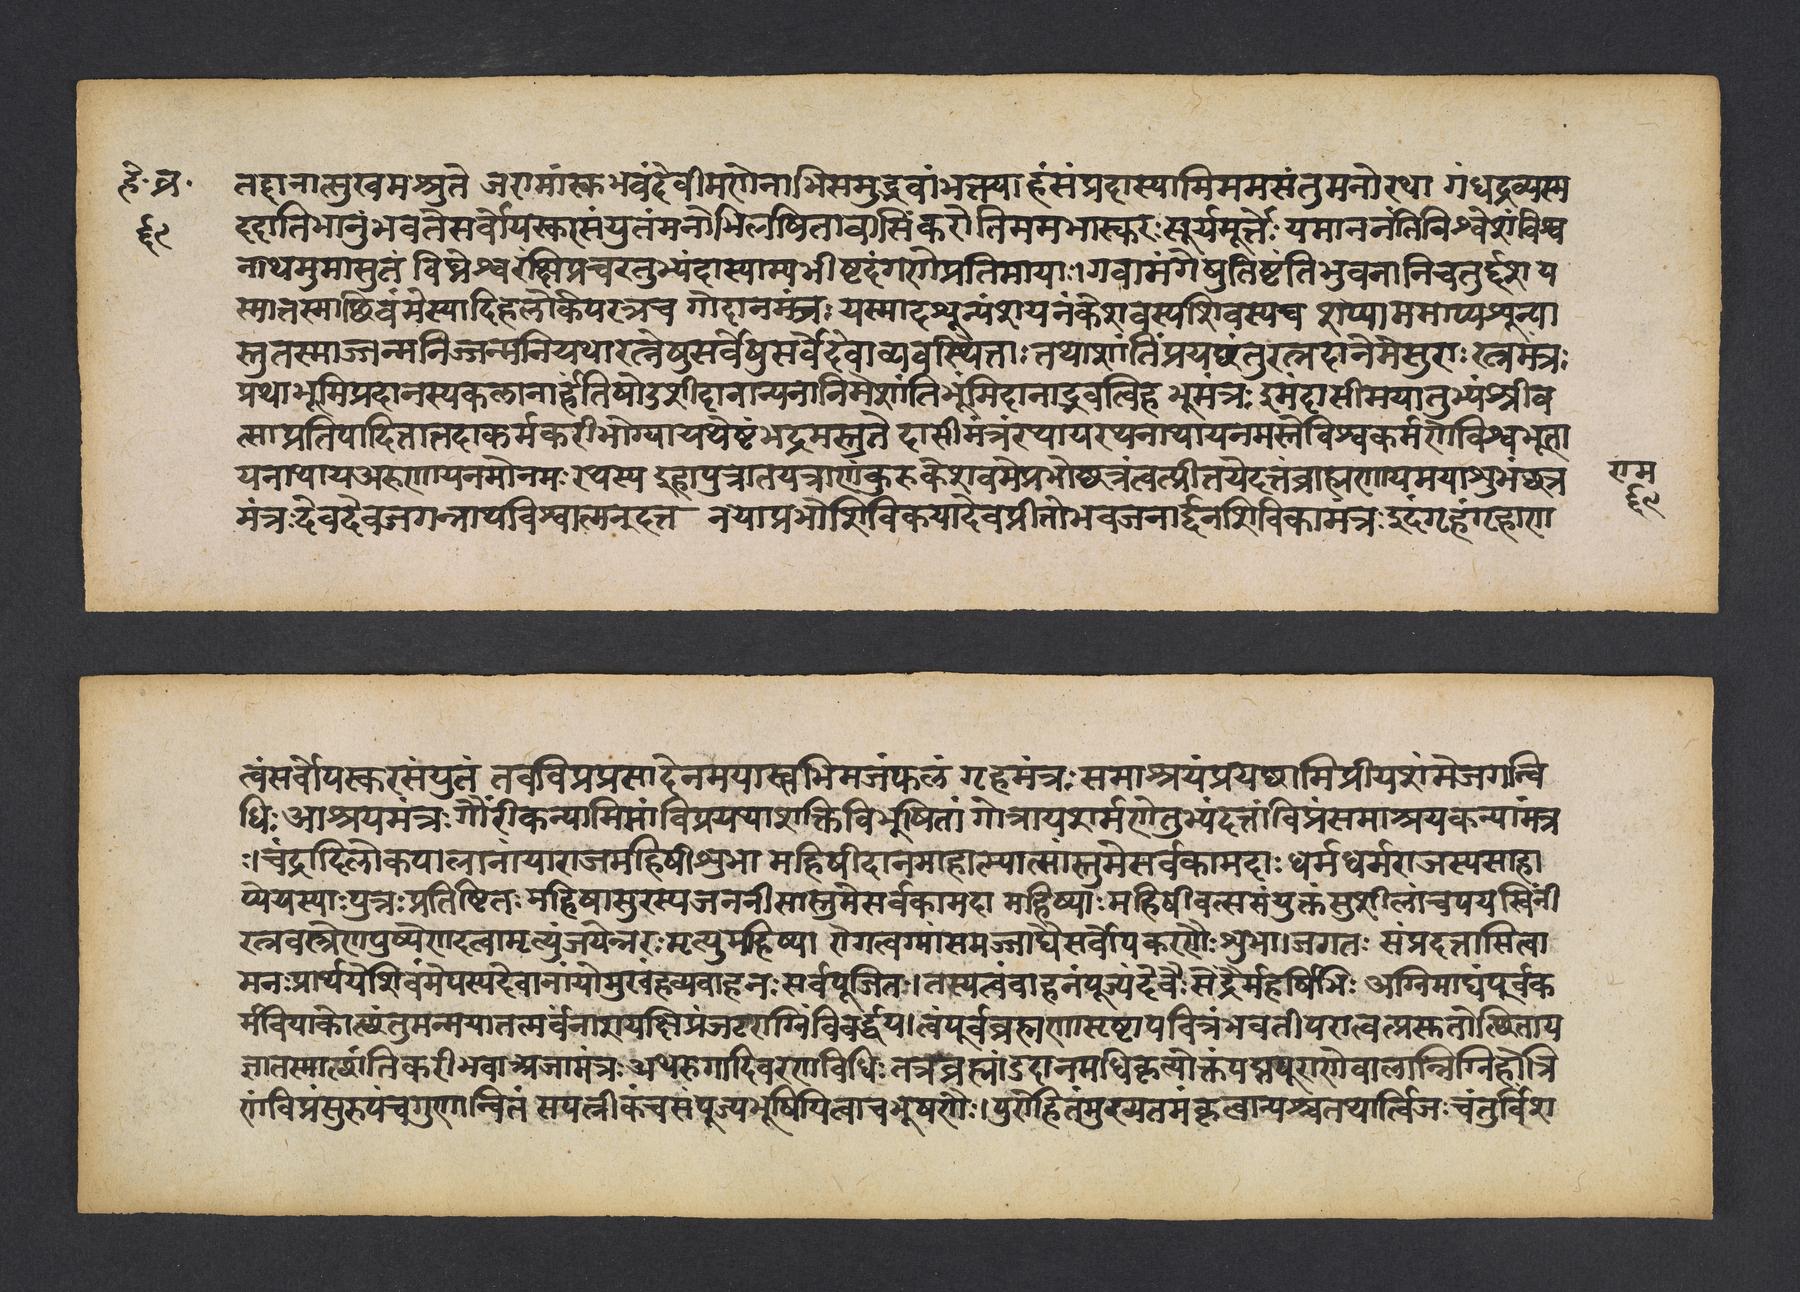 हे. व्र.
६९
तद्दानात्सुखमश्नुते जरामांस्कभवंदेवीमरोनाभिसमुद्भवांभत्तयाहंसंप्रदास्यामिममसंतुमनोरथा गंधद्रव्यस्म
ददातिभानुंभवतेसर्वोपस्कासंयुतंमनोभिलषितावासिंकरोतिममभास्करः सूर्यमूर्त्तेः यमाननंतिविश्वेशंविश्व
नाथमुमासुतं विघ्नेश्वरंक्षिप्रचरतुभ्यंदास्याम्यभीष्टदंगणेप्रतिमाया। गवामंगेषुतिष्टंतिभुवनानिचतुर्द्दश य
स्मात्तस्माछिवंमेस्यादिहलोकेपरत्रच गोदानमंत्रः यस्मादशून्यंशयनंकेशवस्यशिवस्यच शय्याममाप्यशून्या
स्तुतस्माज्जन्मनिज्जन्मनियथारत्नेषुसर्वेषुसर्वेदेवाव्यवस्थित्ताः तथाशांतिंप्रयछंतुरत्नदानेमेसुराः रत्नमंत्रः
प्रथाभूमिप्रदानस्यकलानार्हंतिषोडशीदानान्यनानिमेशांतिर्भूमिदानाद्भवत्विह भूमंत्रः इमंदासीमयातुभ्यंश्रीव
त्साप्रतिपादितातदाकर्मकरीभोग्यायथेष्टंभद्रमस्तुते दासीमंत्रंरथायरथनाथायनमस्तेविश्वकर्मणेविश्वभूता
यनाथायअरुणायनमोनमः रथस्य इहापुत्रातयत्राणंकुरुकेशवमेप्रभोछत्रंत्वत्प्रीतयेदत्तंब्राह्मणायमयाशुभंछत्र
मंत्रः देवदेवजगन्नाथविश्वात्मनुदत्त नयाप्रभोशिविकयादेवप्रीतोभवजनार्द्दनशिविकामंत्रः इदंगृहंगृहाण
राम
६९
त्वंसर्वोपस्करसंयुतं तवविप्रप्रसादेनममास्त्वभिमजंफलं गृहमंत्रः समाश्रयंप्रयछामिप्रीयशंमेजगत्वि
धिः आश्रयमंत्रः गौरींकन्यामिमांविप्रयथाशक्तिविभूषितां गोत्रायशर्मणेतुभ्यंदत्तांविप्रंसमाश्रयकन्यामंत्र
। चंद्रादिलोकपालानांयाराजमहिषीशुभा महिषीदानमाहात्म्यात्सास्तुमेसर्वकामदाः धर्मधर्मराजस्यसाहा
प्येयस्याः पुत्रः प्रतिष्टितः महिषासुरस्यजननीसास्तुमेसर्वकामदा महिष्याः महिषीवत्ससंयुक्तंसुशीलांचपयस्विनीं
रत्नवस्त्रेणपुष्पेणदत्वामृत्युंजयेन्नरः मृत्युमहिष्या रोगत्वग्यांसमज्जाद्यैसर्वोपकरणैः शुभा। जगतः संप्रदत्तासित्वा
मनः प्रार्थयेशिवंमेयस्यदेवानायोमुखंहव्यवाहनः सर्वपूजितः। तस्यत्वंवाहनंपूज्यंदेवैः सेंद्रैर्महर्षिभिः अग्निमाद्यंपूर्वक
र्मविपाकोत्थंतुमन्मयातत्सर्वंनाशयक्षिप्रंजठराग्निंविवर्द्धय। त्वंपूर्वंब्रह्मणासृष्टापवित्रंभवतीपरात्वत्प्रस्तुतोत्थिताय
ज्ञातस्मात्शांतिकरीभवाअजामंत्रः अथरुगादिवरणविधिः तत्रब्रह्मांडदानमधिकृत्योक्तंपद्मपुराणेवालाग्निग्निहोत्रि
णंविप्रंसुरूपंचगुणान्वितं सपत्नीकंचसंपूज्यभूषयित्वाचभूषणैः। पुरोहितंमुख्यतमंकृत्वान्याश्चतथार्त्विजः चंतुर्विश